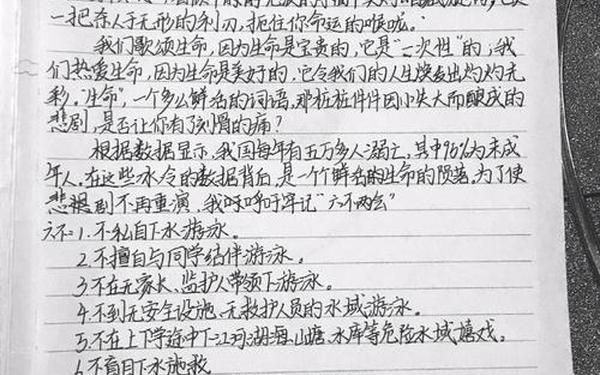 一把杀人于无形的利刃,扼住你命运的喉咙。
我们歌颂生命,因为生命是宝贵的,它是"一次性"的;我
们热爱生命,因为生命是美好的,它令我们的人生焕发出灼灼光
彩。"生命",一个多么鲜活的词语,那桩桩件件因小失大而酿成的
悲剧,是否让你有了刻骨的痛?
根据数据显示,我国每年有五万多人溺亡,其中96%为未成
年人。在这些冰冷的数据背后,是一个鲜活的生命的陨落。为了使
悲剧不再重演,我呼吁牢记"六不两会"
六不:1.不私自下水游泳。
2.不擅自与同学结伴游泳。
3.不在无家长、监护人带领下游泳。
4.不到无安全设施、无救护人员的水域游泳。
5.不在上下学途中下江河湖海、山塘、水库等危险水域嬉戏。
6.不盲目下水施救